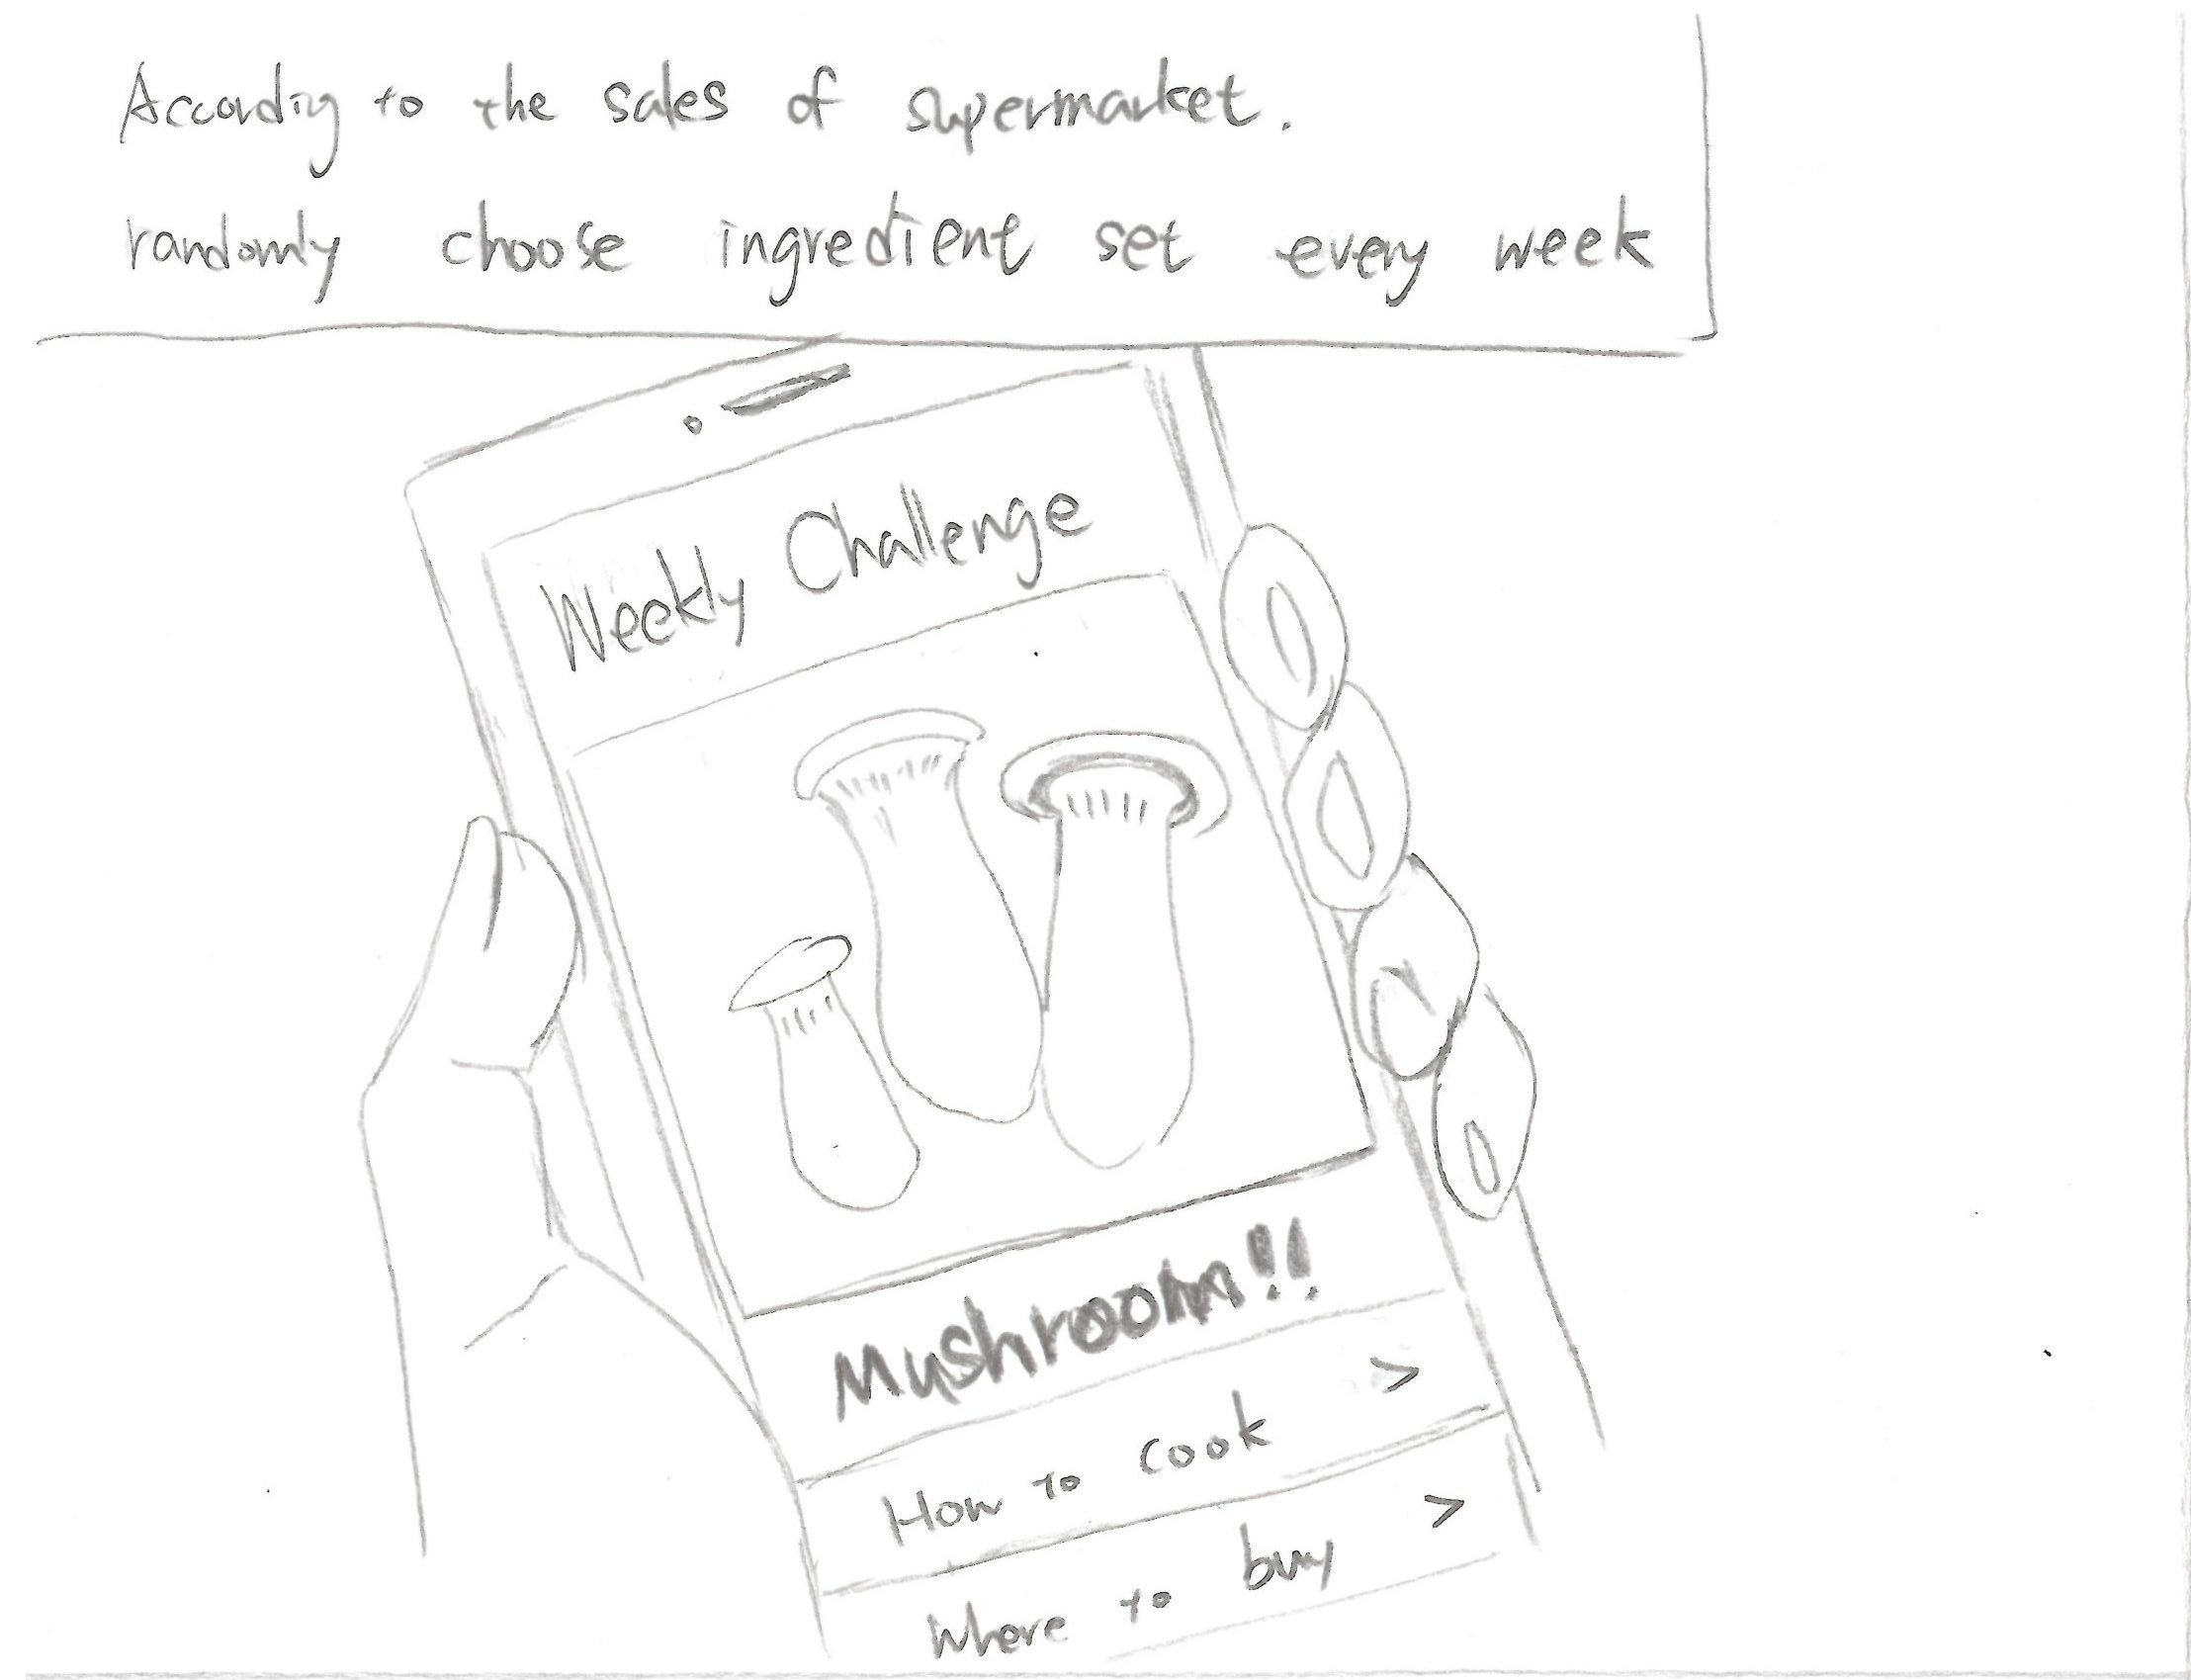 According to the sales of supermarket.
randomly choose ingredient set every week
Weekly Challenge
Mushroom!!
How to cook >
Where to buy >